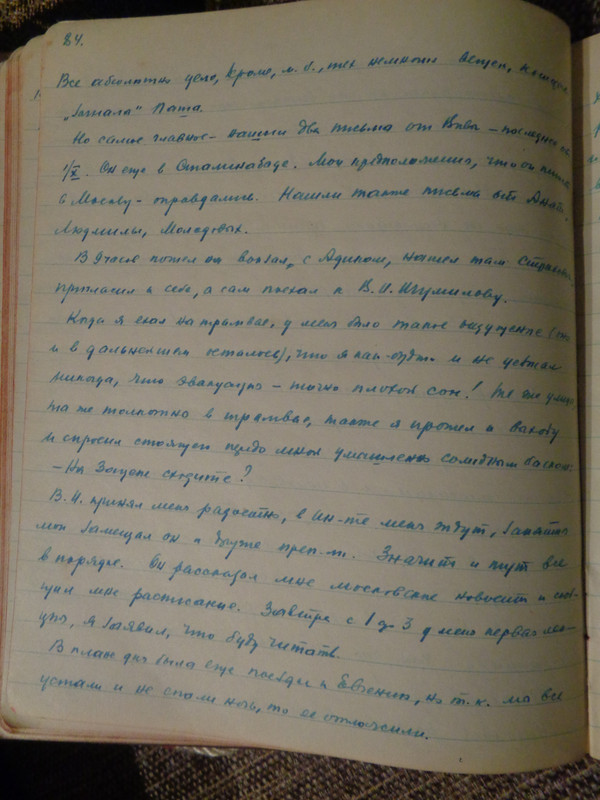 84.
Все абсолютно цело, кроме, м. б., тех немногих вещей, которые
„загнала" Паша.
Но самое главное - нашли два письма от Вивы - последнее от
1/X. Он еще в Сталинабаде. Мои предположения, что он писал
в Москву - оправдались. Нашли также письма от Анат.,
Людмилы, Молодовых.
В 9 часов пошел на вокзал, с Адиком, нашел там
пригласил к себе, а сам поехал к В. И. Шумилову.
Когда я ехал на трамвае, у меня было такое ощущение (оно
и в дальнейшем осталось), что я как-будто и не уезжал
никогда, что эвакуация - точно плохой сон! Те же улицы,
та же толкотня в трамвае, также я прошел к выходу
и спросил стоящего передо мной умышленно солидным басом:
- На Зацепе сходите?
В. И. принял меня радостно, в ин-те меня ждут, занятия
мои замещал он и другие преп-ли. Значит и тут все
в порядке. Он рассказал мне московские новости и сооб-
щил мне расписание. Завтра с 1 до 3 у меня первая лек-
ция, я заявил, что буду читать.
В плане дня была еще поездка к Евгении, но т. к. мы все
устали и не спали ночь, то ее отложили.